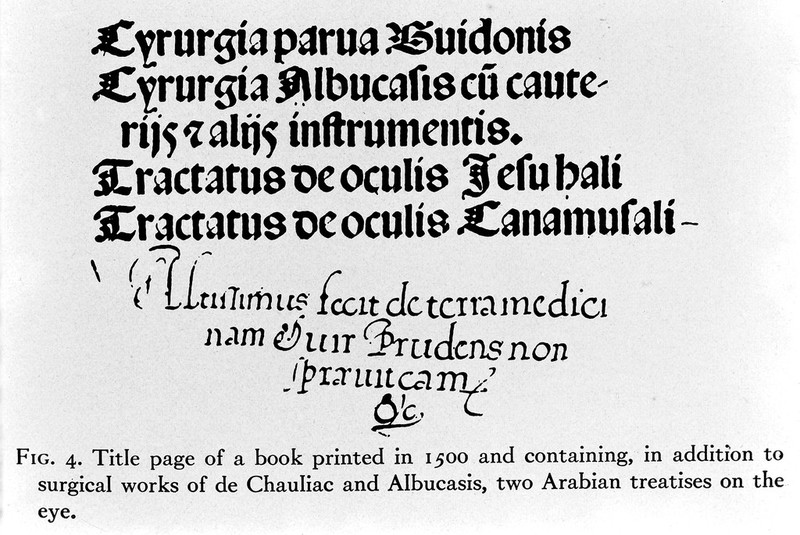 Cyrurgia parua Guidonis
Cyrurgia Albucasis cū caute-
rijs ⁊ alijs inſtrumentis.
Tractatus de oculis Jeſu hali
Tractatus de oculis Canamuſali-
Altiſimus fecit de terra medici
nam & uir Prudens non
&c.
FIG. 4. Title page of a book printed in 1500 and containing, in addition to
surgical works of de Chauliac and Albucasis, two Arabian treatises on the
eye.